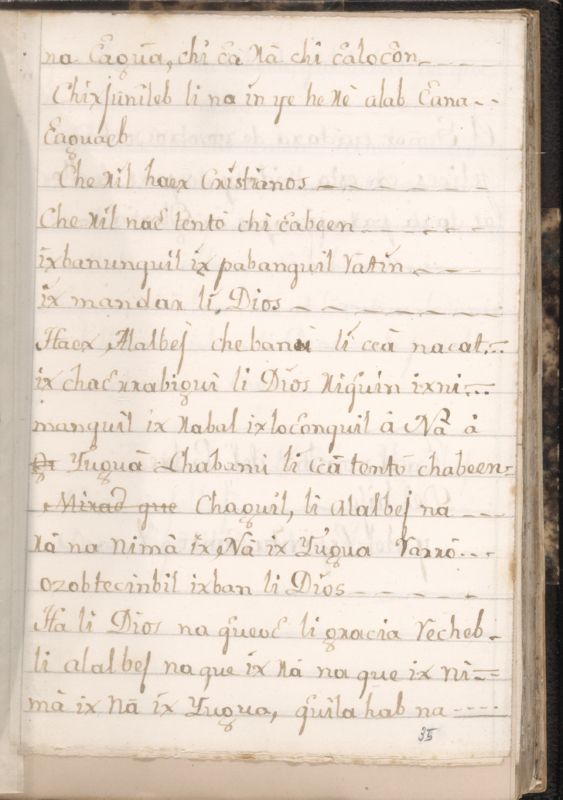 na Eaguâ, chi Ea Xâ chi EaloEôn
Chixjunîleb li na in ye he Xê alab Eana
Eaguâeb
Che Xil haex Cristianos
Che Xil naE tento chi Eabeen
ixbanunquil ix pabanquil Vatin
ix mandar li Dios
Haex Alalbej che banu li cca nacat
ix chaE rrabiguî li Dios Xiquin ixni
manquil ix Xabal ixloEonquil â Nâ â
Yuguâ Chabanu li Ecâ tentô chabeen
Mirad que Chaquil, li alalbej na
Xâ na nimâ ix Nâ ix Yugua Varrô
ozobtecinbil ixban li Dios
Ha li Dios na queoE li gracia Vecheb
li alalbej na que ix Xâ na que ix ni
mâ ix Nâ ix Yugua, quila hab na
35